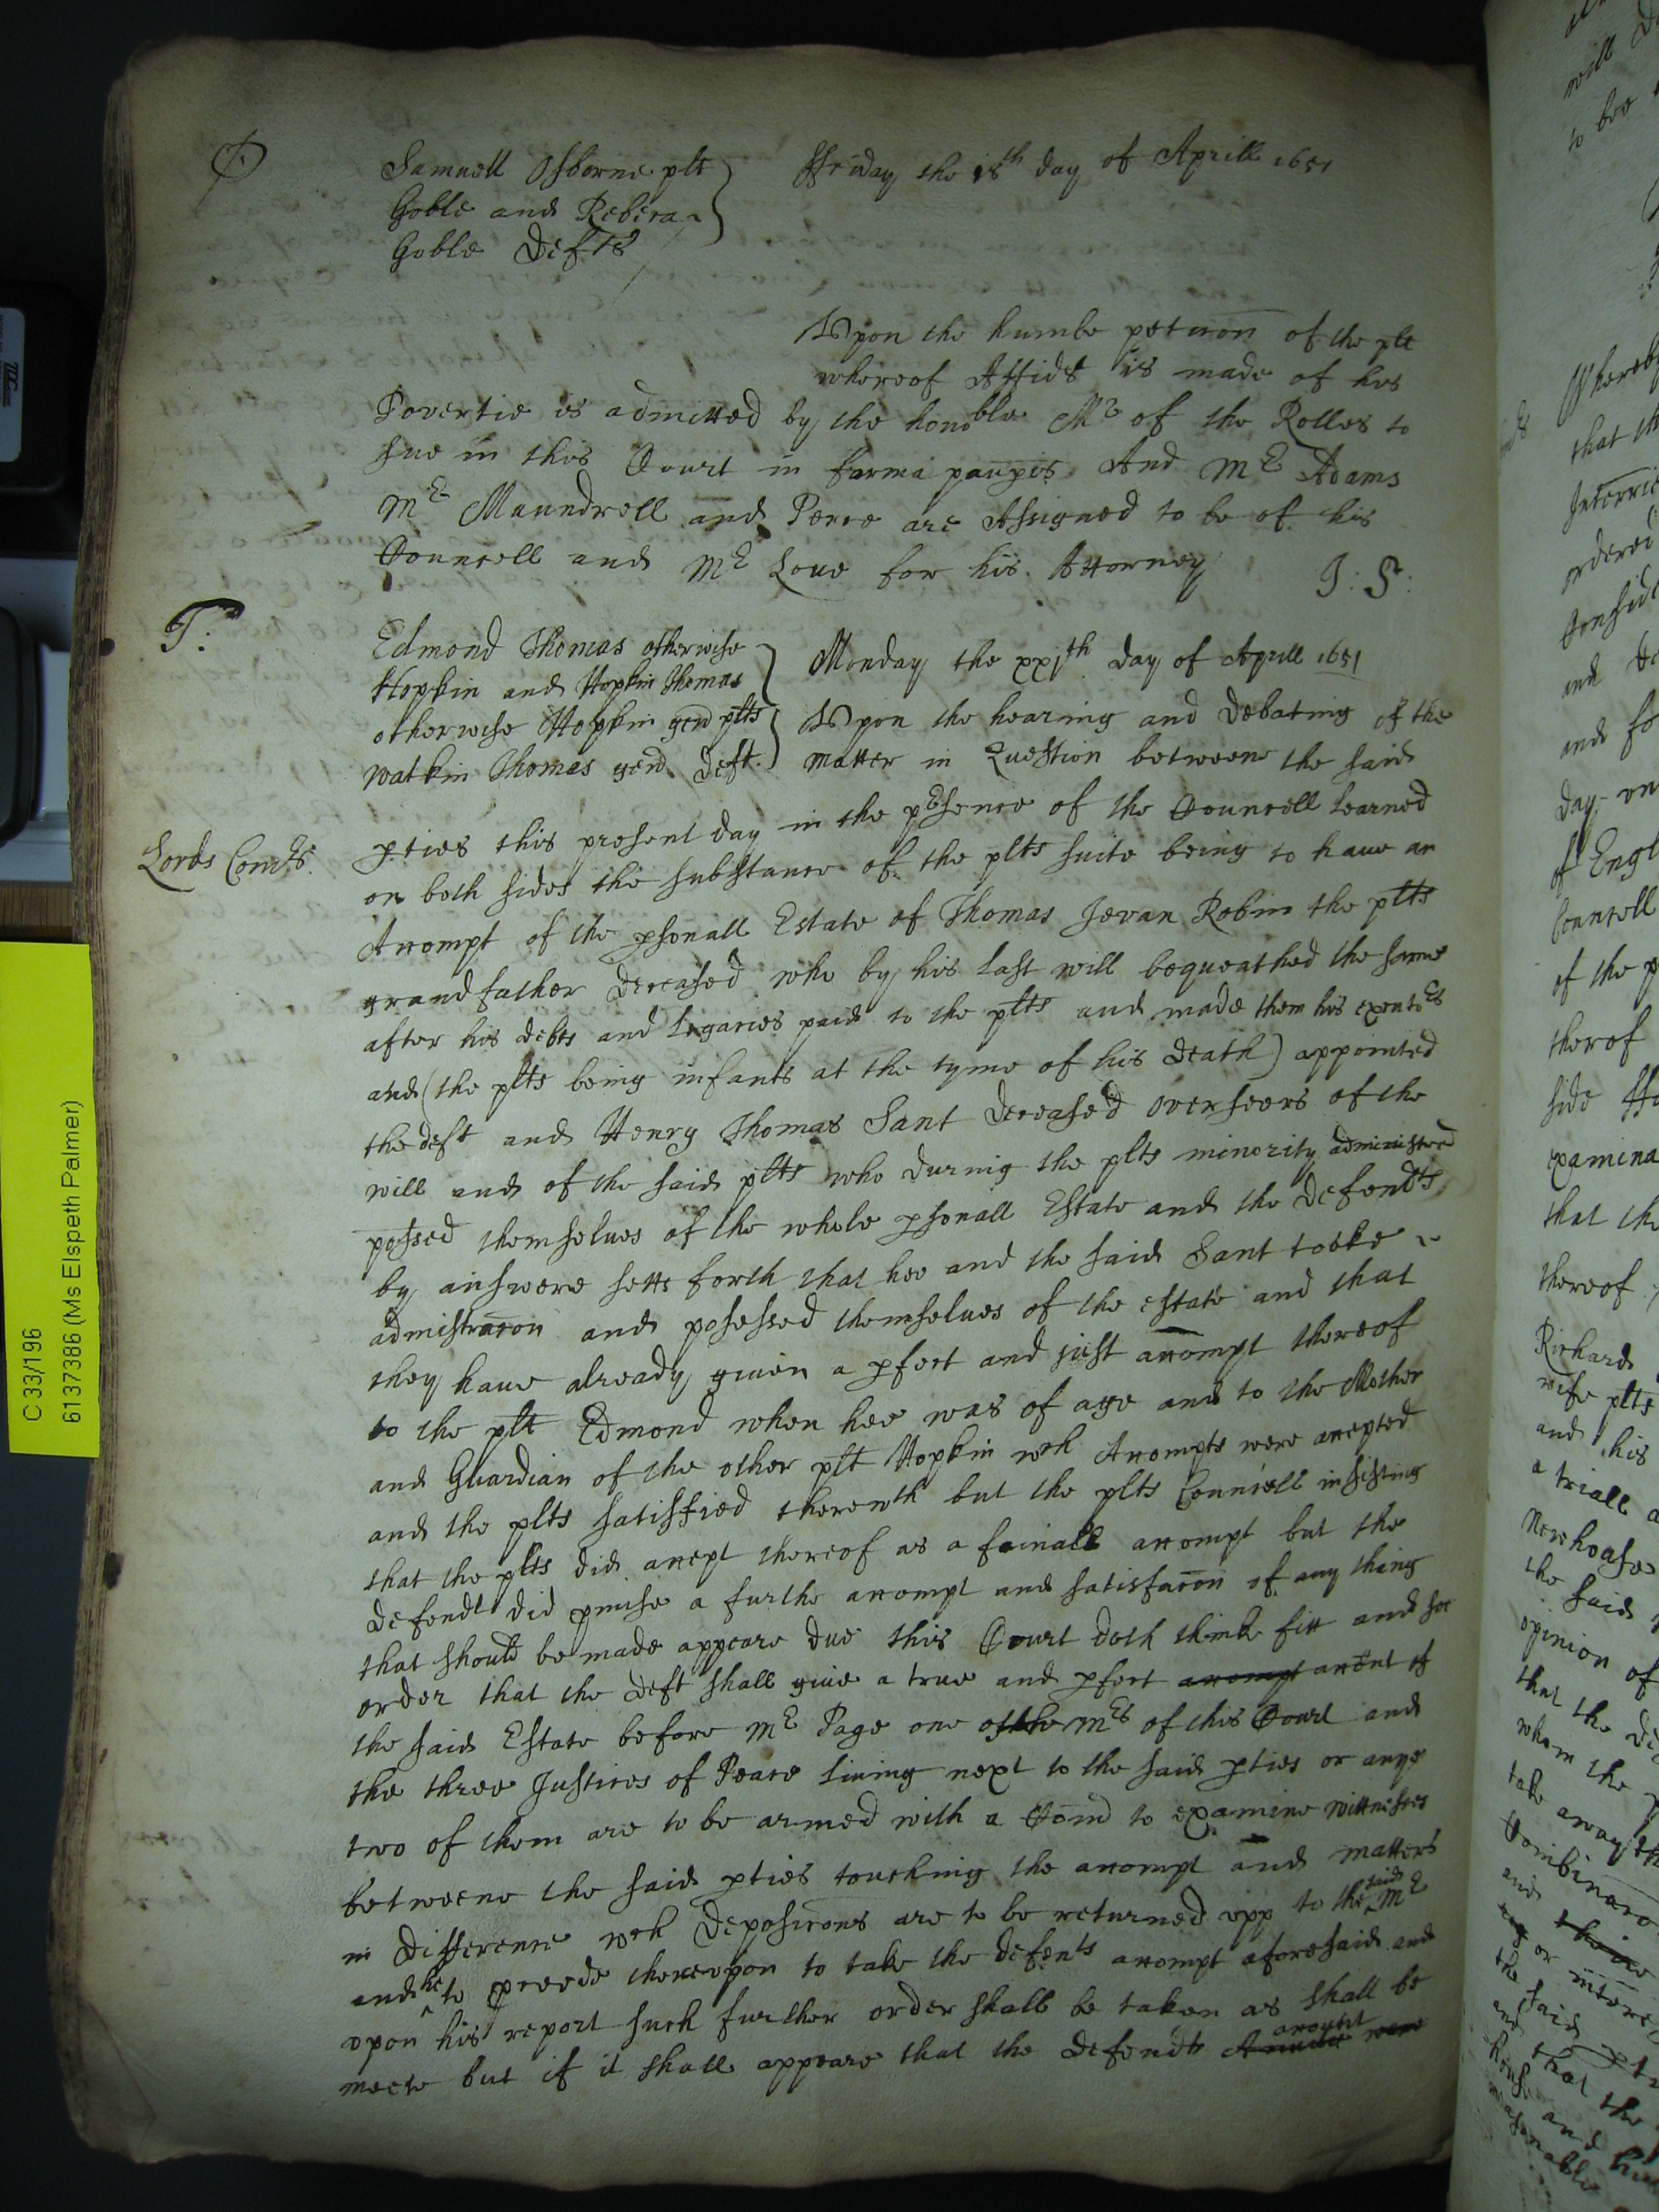 O
Samuell Osborne plt
Goble and Rebecca
Goble Defts
Ffriday the 18th day of Aprill 1651
Upon the humble peticon of the plt
whereof Affidt is made of his
Povertie is admitted by the honoble Mr of the Rolles to
sue in this Court in forma paupis And Mr Adams
Mr Maundrell and Perce are Assigned to be of his
Councell and Mr Loue for his Attorney J: S:
T:
Edmond Thomas otherwise
Hopkin and Hopkin Thomas
otherwise Hopkin gen plts
Watkin Thomas gen Deft.
Monday the xxjth day of Aprill 1651
Upon the hearing and Debating of the
matter in Question betweene the said
Lords Comrs.
pties this present day in the prsence of the Councell learned
on both sides the substance of the plts suite being to haue an
Accompt of the psonall Estate of Thomas Jevan Robin the plts
grandfather deceased who by his last will bequeathed the same
after his debts and legacies paid to the plts and made them his executrs
and (the plts being infants at the tyme of his death) appointed
the deft and Henry Thomas Sant deceased overseers of the
will and of the said plts who during the plts minority administred
possed themselues of the whole psonall Estate and the Defendts
by answere setts forth that hee and the said Sant tooke
admistracon and posessed themselues of the estate and that
they haue already giuen a pfect and just accompt thereof
to the plt Edmond when hee was of age and to the Mother
and Guardian of the other plt Hopkin wch Accompts were accepted
and the plts satisfied therewth but the plts Councell insisting
that the plts did accept thereof as a fainall accompt but the
Defendt did pmise a furthe accompt and satisfacon of any thing
that should be made appeare due this Court doth thinke fitt and soe
order that the deft shall giue a true and pfect accompt accont of
the said Estate before Mr Page one of the Mrs of this Court and
the three Justices of Peace liuing next to the said pties or anye
two of them are to be armed with a Com to examine wittnisses
betweene the said pties touching the accompt and matters
in difference wch deposicons are to be returned upp to the said Mr
and he to pceede thereupon to take the defents accompt aforesaid and
upon his report such further order shall be taken as shall be
meete but if it shall appeare that the Defendts account were
C 33/196
6137386 (Ms Elspeth Palmer)
will
to bee
Whereby
that th
ordered
and
and fo
day
of Engl
Councell
of the p
therof
side
examina
that the
thereof
Richard
wife plts
and his
a triall
the said
opinion of
that the De
whom the
take away
and
or
the said
and that the
and